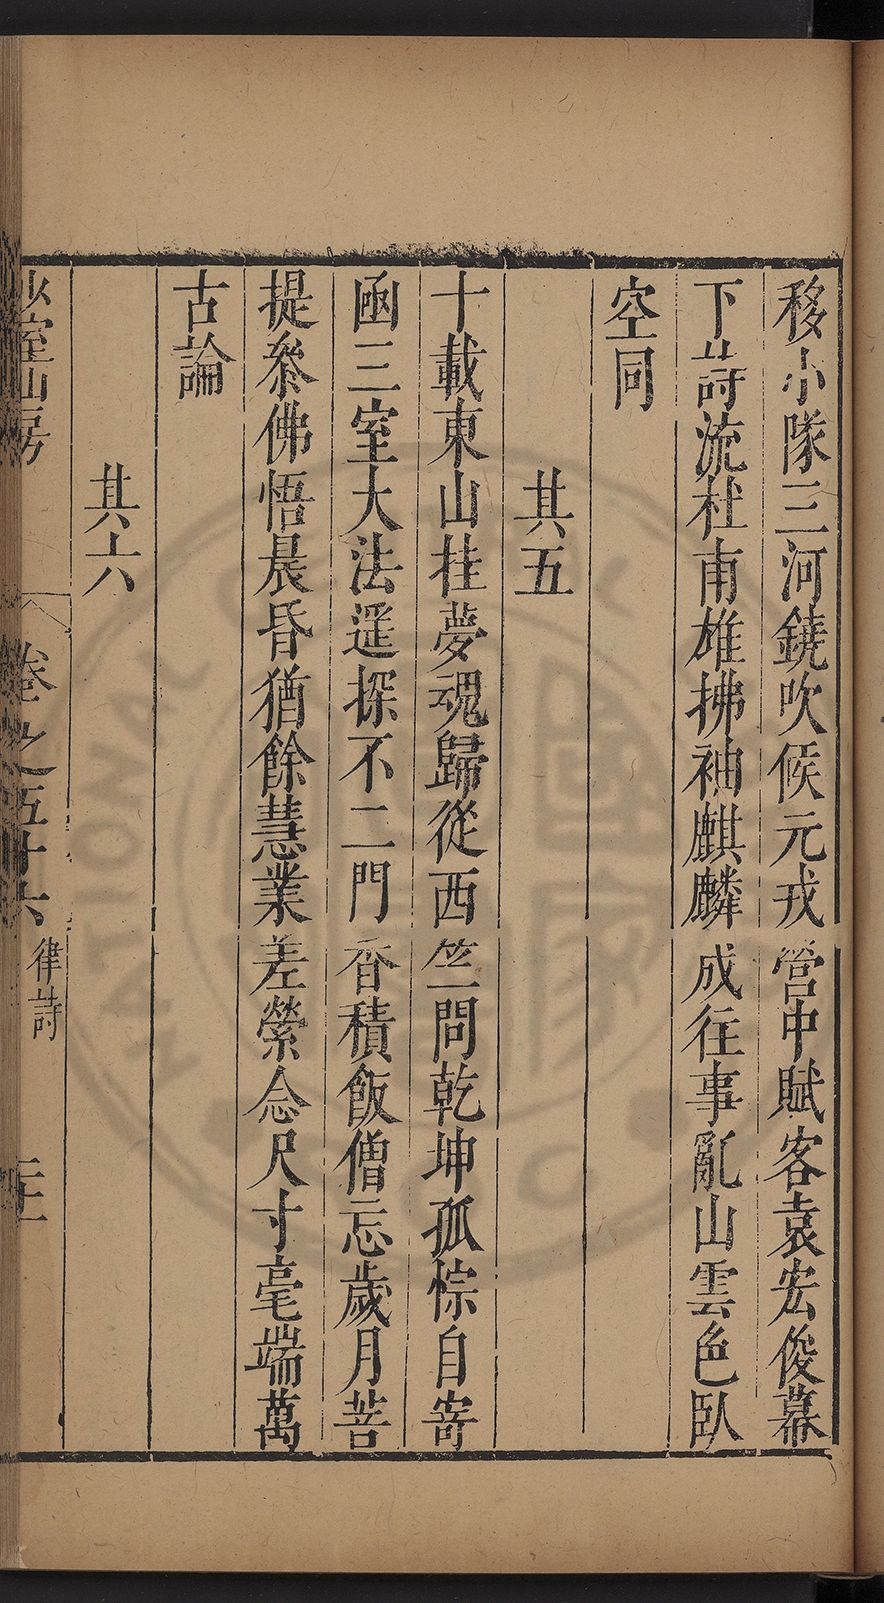 移小隊三河鐃吹候元戎營中賦客袁宏俊幕
下詩流杜甫雄拂袖麒麟成往事亂山雲色臥
空同
其五
十載東山挂夢魂歸從西竺問乾坤孤悰自寄
函三室大法遥探不二門香積飯僧忘歲月菩
提叅佛悟晨昏猶餘慧業差縈念尺寸毫端萬
古論
其六
少室山房
卷之五十六
律詩